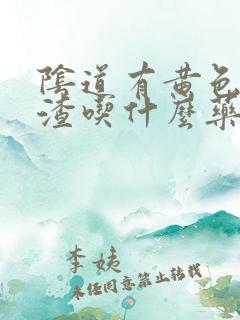 陰道有黄色
渣喫什麽藥
李姨
未经同意禁止转载